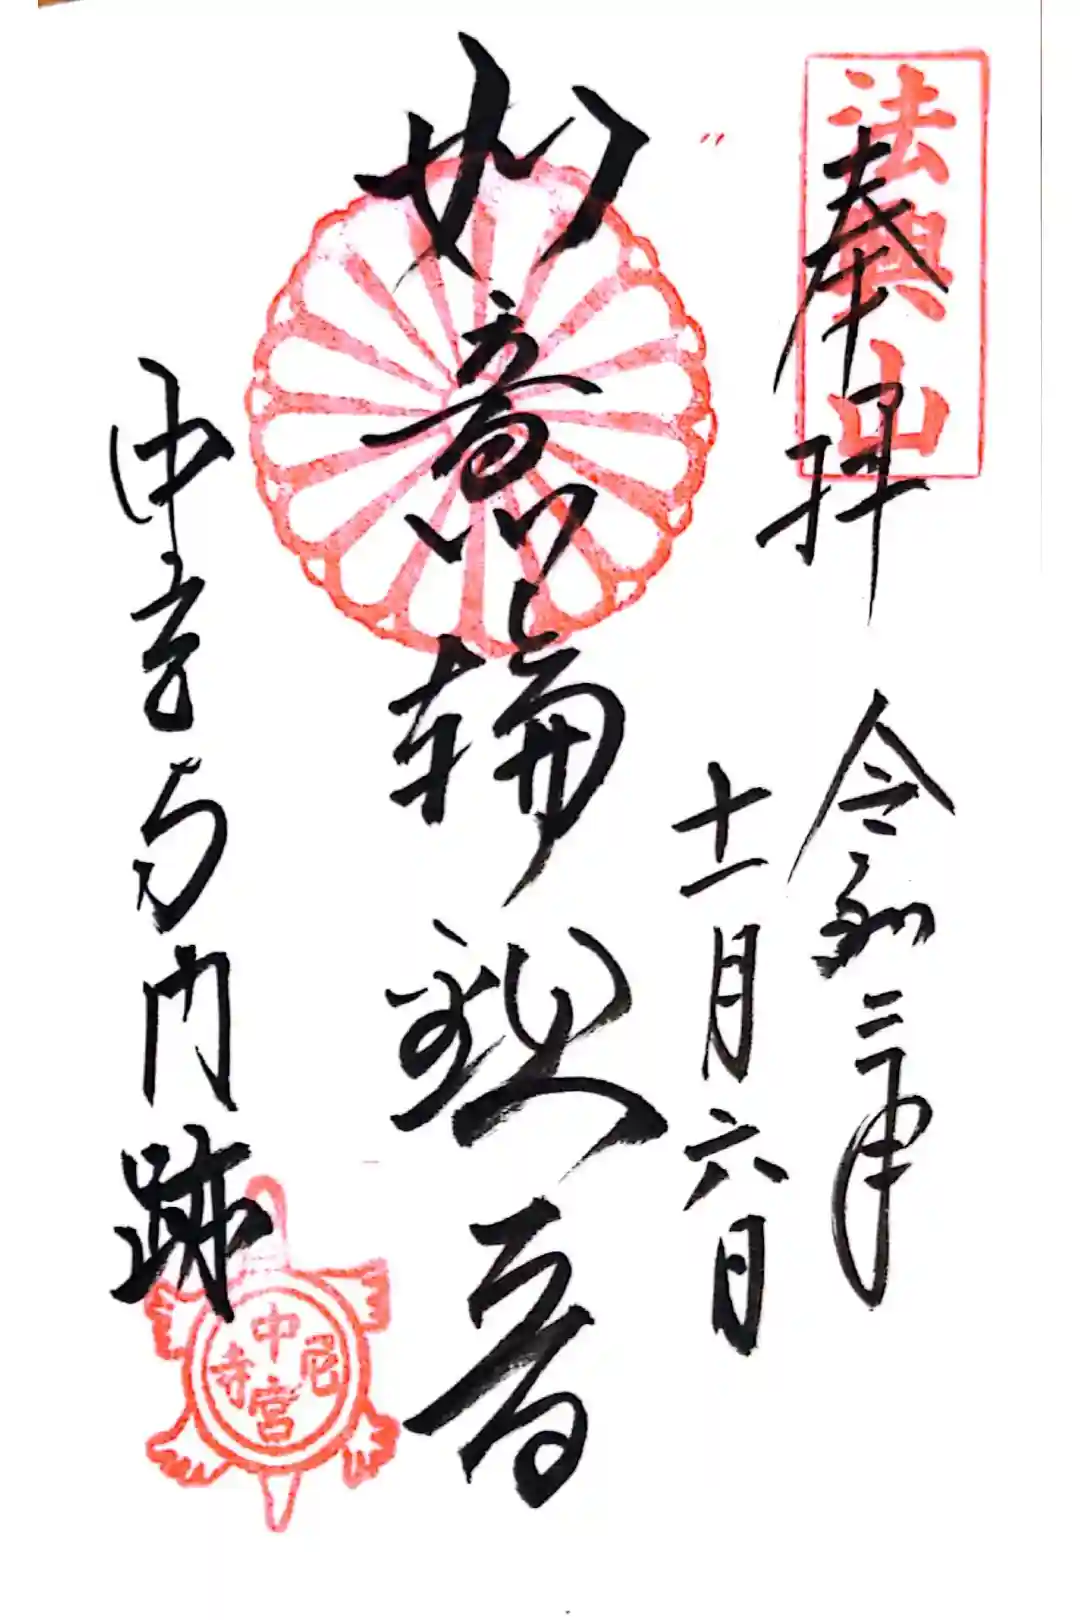 法興山
奉拝
令和三年
十一月六日
如意輪観音
中宮寺門跡
中宮尼寺